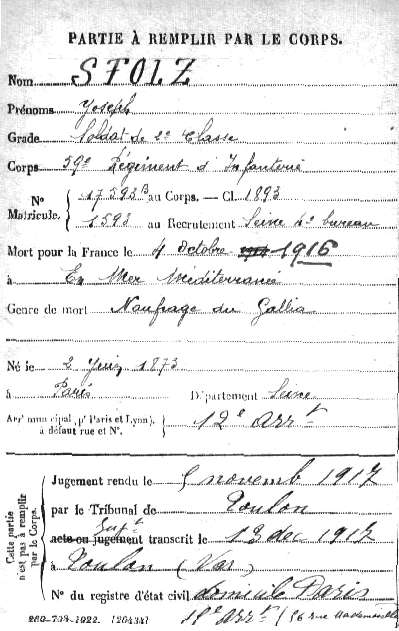 PARTIE À REMPLIR PAR LE CORPS.
Nom STOLZ
Prénoms Joseph
Grade Soldat de 2e Classe
Corps 59e Régiment d'Infanterie
N° Matricule. 17593B au Corps. — Cl. 1893
1593 au Recrutement Seine 4e bureau
Mort pour la France le 4 Octobre 1916
à En Mer Méditerranée
Genre de mort Naufrage du Gallia
Né le 2 Juin 1873
à Paris Département Seine
Arrt municipal (pr Paris et Lyon), à défaut rue et N°. 12e Arrt
Cette partie n'est pas à remplir par le Corps.
Jugement rendu le 5 novemb 1917
par le Tribunal de Toulon
acte ou jugement transcrit le 13 dec 1917
à Toulon (Var)
N° du registre d'état civil domicile Paris
Arrt (56 rue Mademoiselle
[26434]